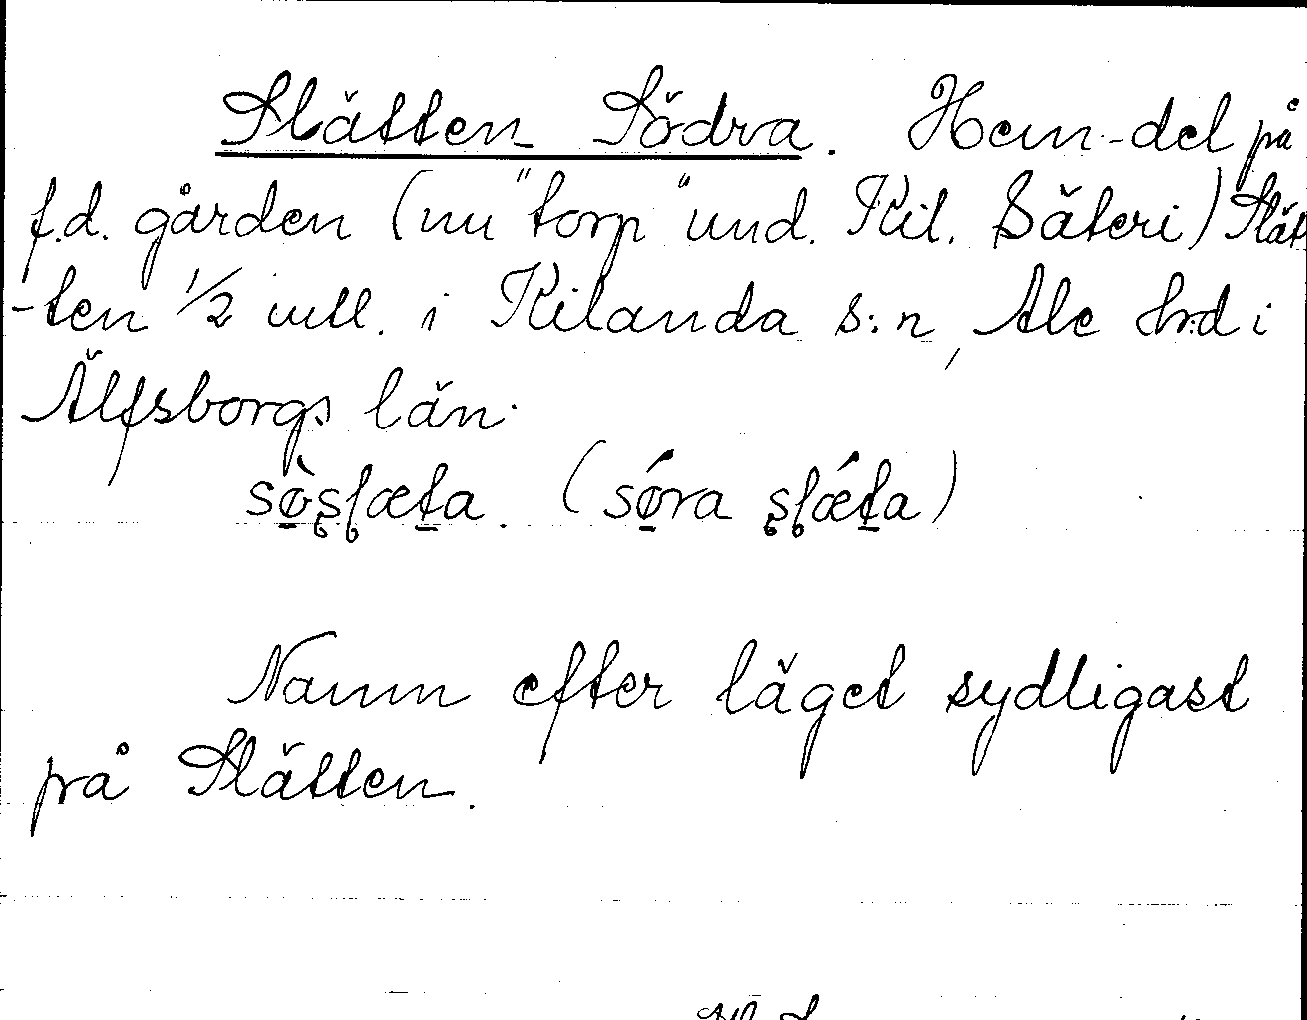 Slätten Södra. Hem.-del på
f.d. gården (nu "torp" und. Kil. Säteri) Slät
-ten 1/2 mtl. i Kilanda s:n, Ale hrd i
Älfsborgs län.
sø̀ʂɭæta. (sǿra ʂɭǽta)
Namn efter läget sydligast
på Slätten.